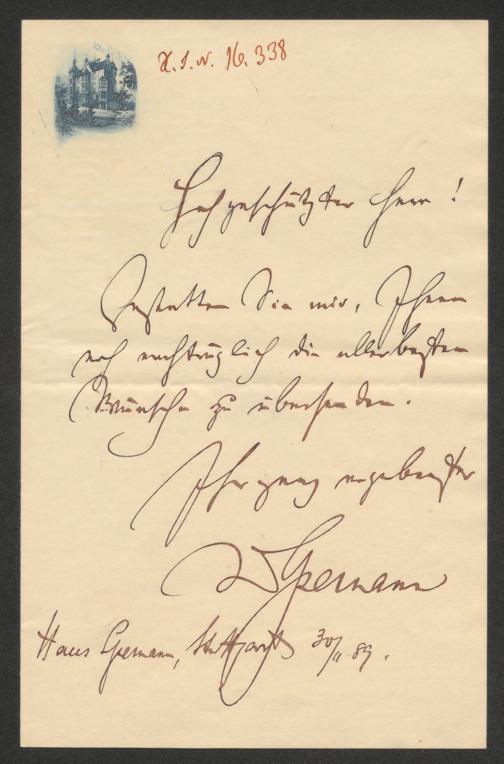 H.I.N. 16.338
Hochgeschätzter Herr!
Gestatten Sie mir, Ihnen
noch nachträglich die allerbesten
Wünsche zu übersenden.
Ihr ganz ergebenster
W Spemann
Haus Spemann, Stuttgart 30/11 89.